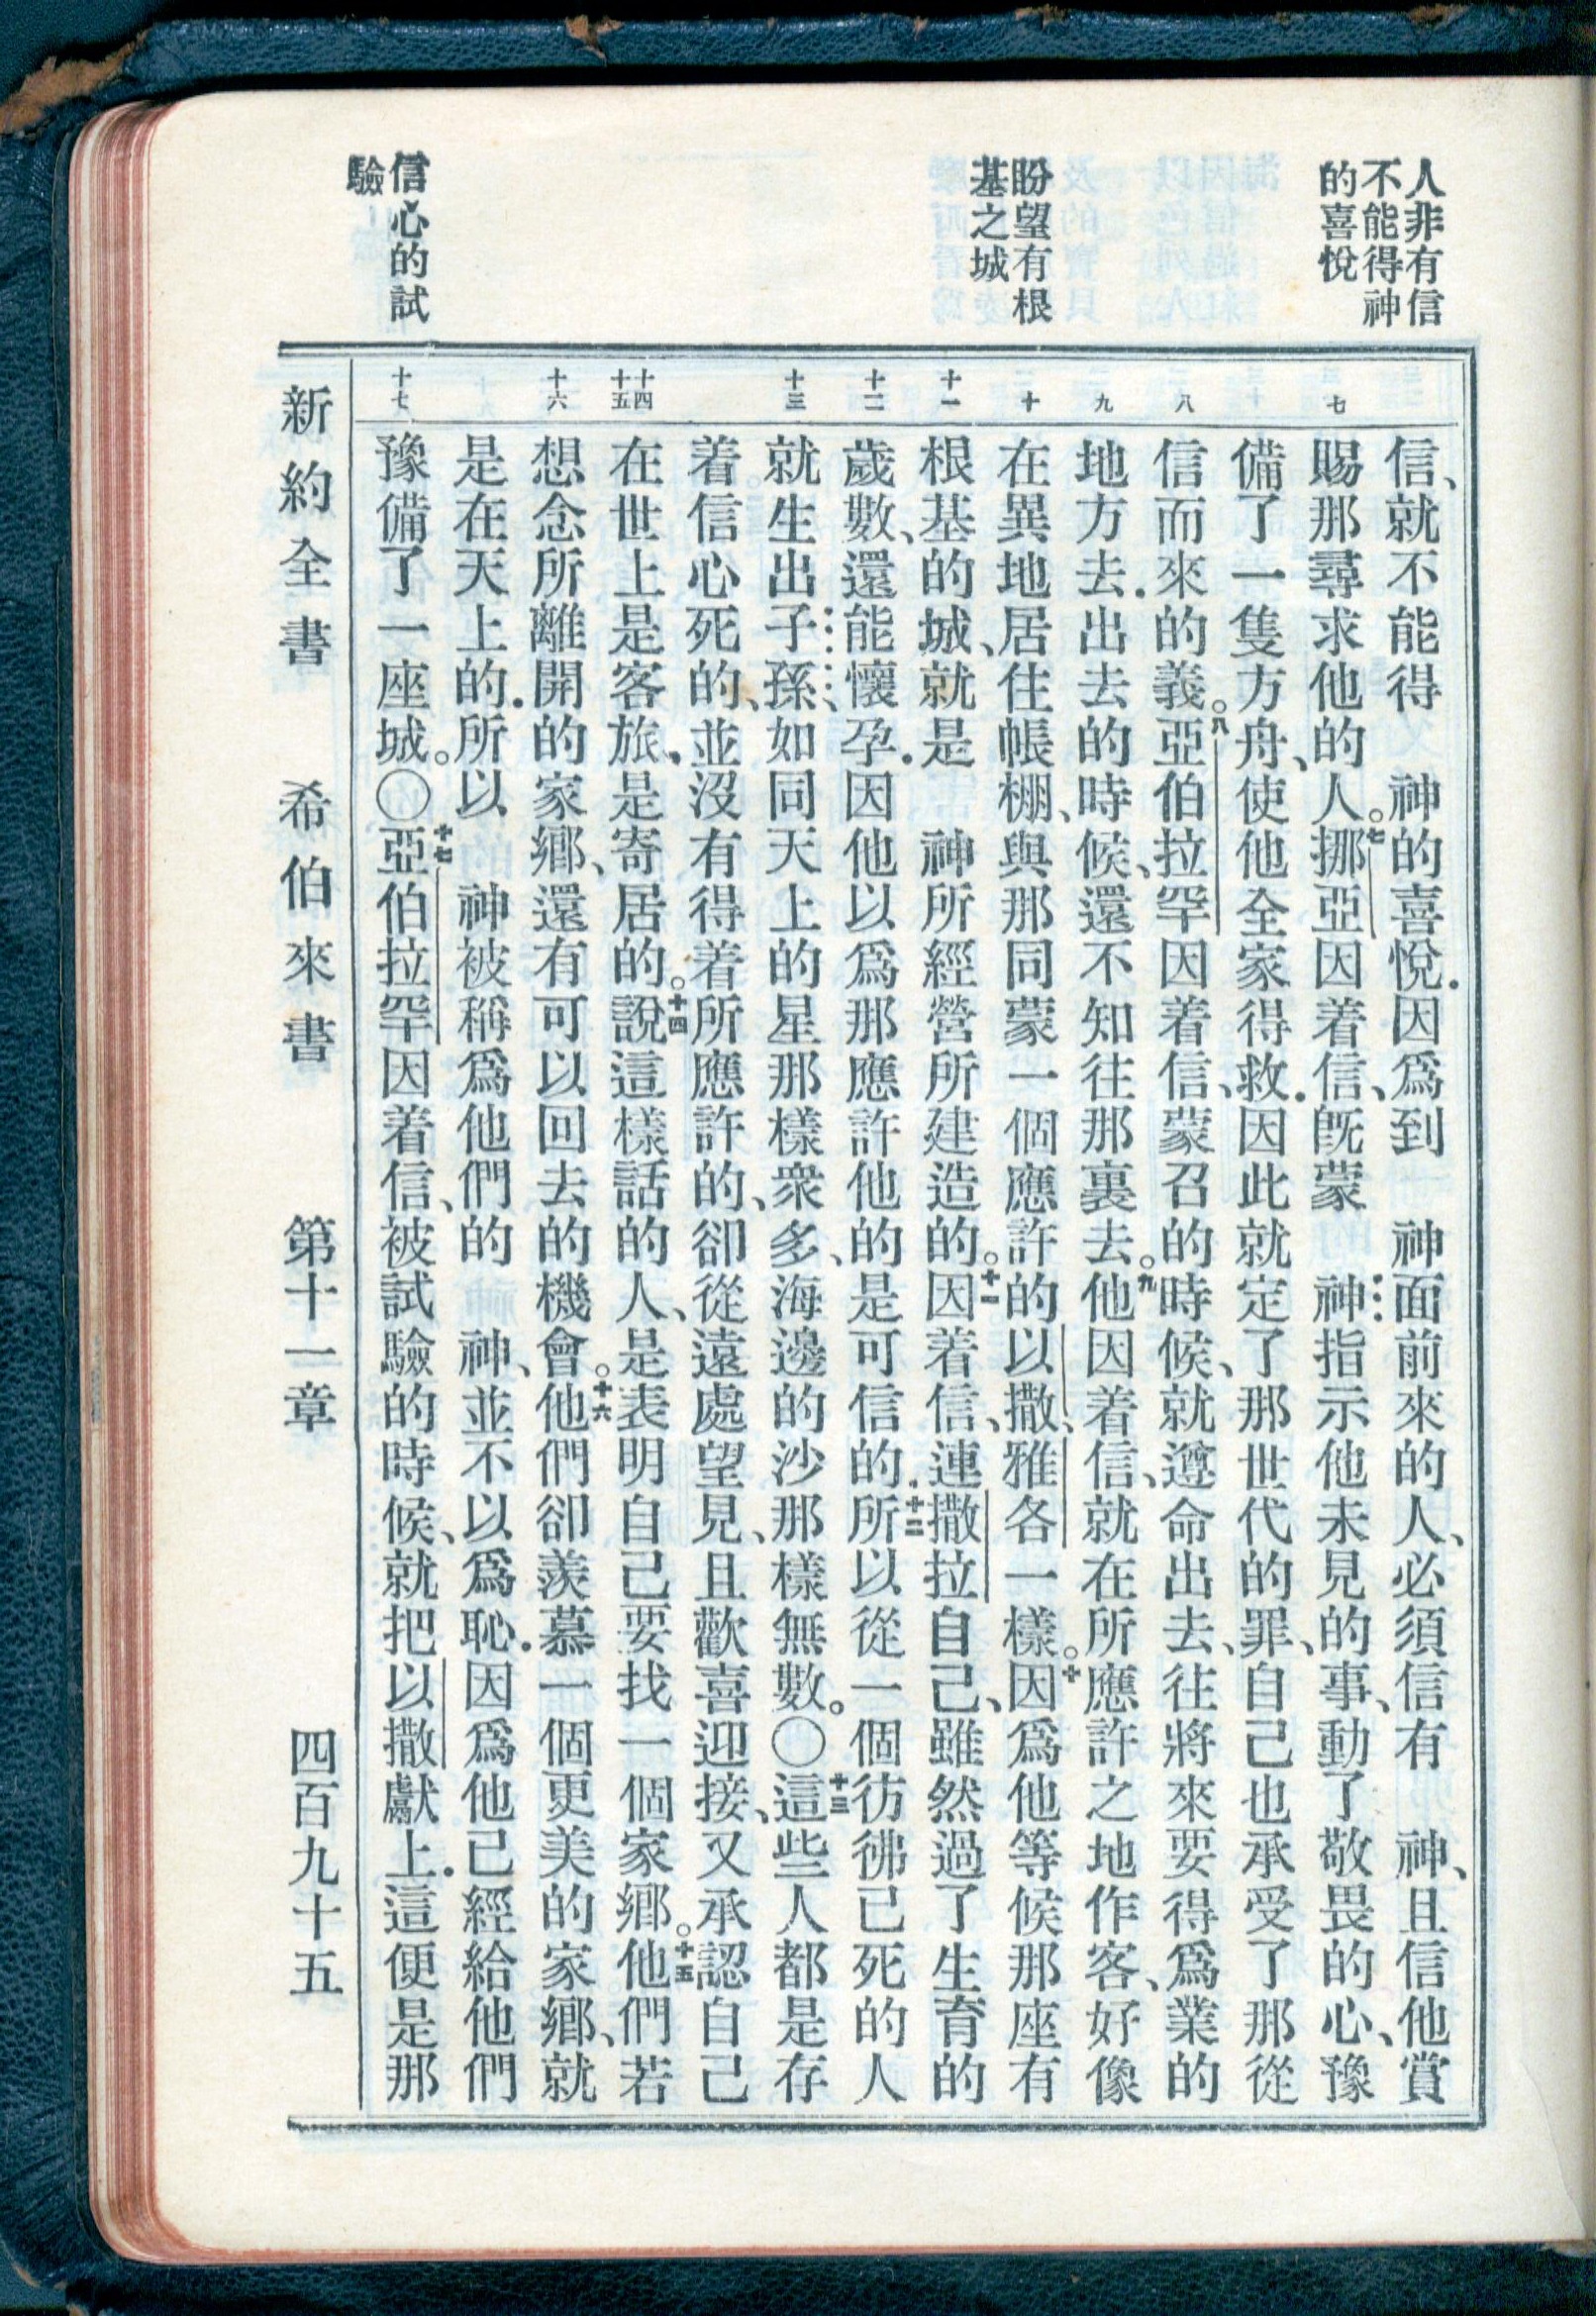 人非有信
不能得神
的喜悅
盼望有根
基之城
信心的試
驗
七
八
九
十
十一
十二
十三
十四
十五
十六
十七
信、就不能得　神的喜悅．因爲到　神面前來的人、必須信有　神、且信他賞
賜那尋求他的人。七挪亞因着信、旣蒙　神指示他未見的事、動了敬畏的心、豫
備了一隻方舟、使他全家得救．因此就定了那世代的罪、自己也承受了那從
信而來的義。八亞伯拉罕因着信、蒙召的時候、就遵命出去、往將來要得爲業的
地方去．出去的時候、還不知往那裏去。九他因着信、就在所應許之地作客、好像
在異地居住帳棚、與那同蒙一個應許的以撒、雅各一樣。十因爲他等候那座有
根基的城、就是　神所經營所建造的。十一因着信、連撒拉自己、雖然過了生育的
歲數、還能懷孕．因他以爲那應許他的是可信的．十二所以從一個彷彿已死的人
就生出子孫、如同天上的星那樣衆多、海邊的沙那樣無數。〇十三這些人都是存
着信心死的、並沒有得着所應許的、卻從遠處望見、且歡喜迎接、又承認自己
在世上是客旅、是寄居的。十四說這樣話的人、是表明自己要找一個家鄉。十五他們若
想念所離開的家鄉、還有可以回去的機會。十六他們卻羨慕一個更美的家鄉、就
是在天上的．所以　神被稱爲他們的　神、並不以爲恥．因爲他已經給他們
豫備了一座城。〇十七亞伯拉罕因着信、被試驗的時候、就把以撒獻上．這便是那
新約全書　希伯來書　第十一章　四百九十五